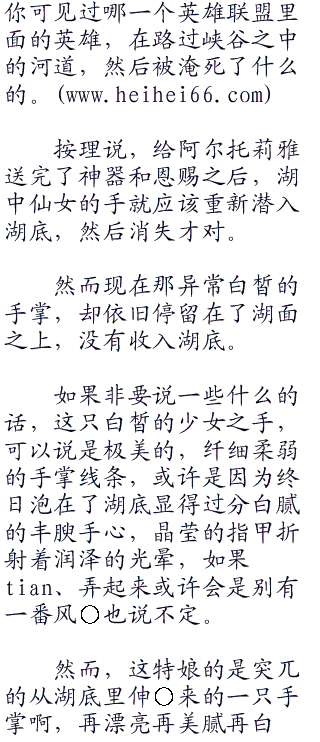 你可见过哪一个英雄联盟里
面的英雄，在路过峡谷之中
的河道，然后被淹死了什么
的。(www.heihei66.com)
按理说，给阿尔托莉雅
送完了神器和恩赐之后，湖
中仙女的手就应该重新潜入
湖底，然后消失才对。
然而现在那异常白皙的
手掌，却依旧停留在了湖面
之上，没有收入湖底。
如果非要说一些什么的
话，这只白皙的少女之手，
可以说是极美的，纤细柔弱
的手掌线条，或许是因为终
日泡在了湖底显得过分白腻
的丰腴手心，晶莹的指甲折
射着润泽的光晕，如果
tian、弄起来或许会是别有
一番风○也说不定。
然而，这特娘的是突兀
的从湖底里伸○来的一只手
掌啊，再漂亮再美腻再白